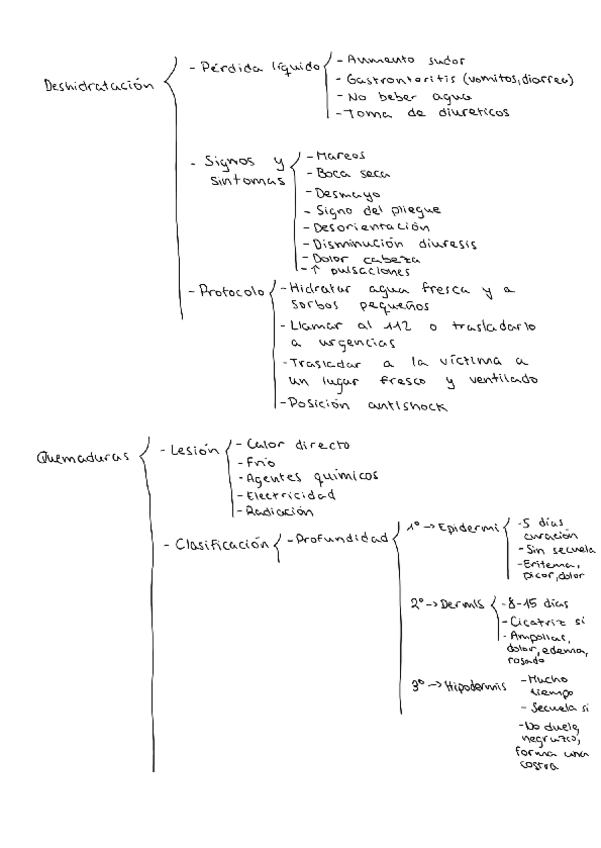 Deshidratación
- Pérdida líquido
- Aumento sudor
- Gastronteritis (vomitos, diarrea)
- No beber agua
- Toma de diureticos
- Signos y
sintomas
- Mareos
- Boca seca
- Desmayo
- Signo del pliegue
- Desorientación
- Disminución diuresis
- Dolor cabeza
- ↑ pulsaciones
- Protocolo
- Hidratar agua fresca y a
sorbos pequeños
- Llamar al 112 o trasladarlo
a urgencias
- Trasladar a la víctima a
un lugar fresco y ventilado
- Posición antishock
Quemaduras
- Lesión
- Calor directo
- Frío
- Agentes químicos
- Electricidad
- Radiación
- Clasificación
- Profundidad
1º → Epidermi
- 5 días
curación
- Sin secuela
- Eritema,
picor, dolor
2º → Dermis
- 8-15 días
- Cicatriz si
- Ampollas,
dolor, edema,
rosado
3º → Hipodermis
- Mucho
tiempo
- Secuela si
- No duele,
negruzco,
forma una
costra